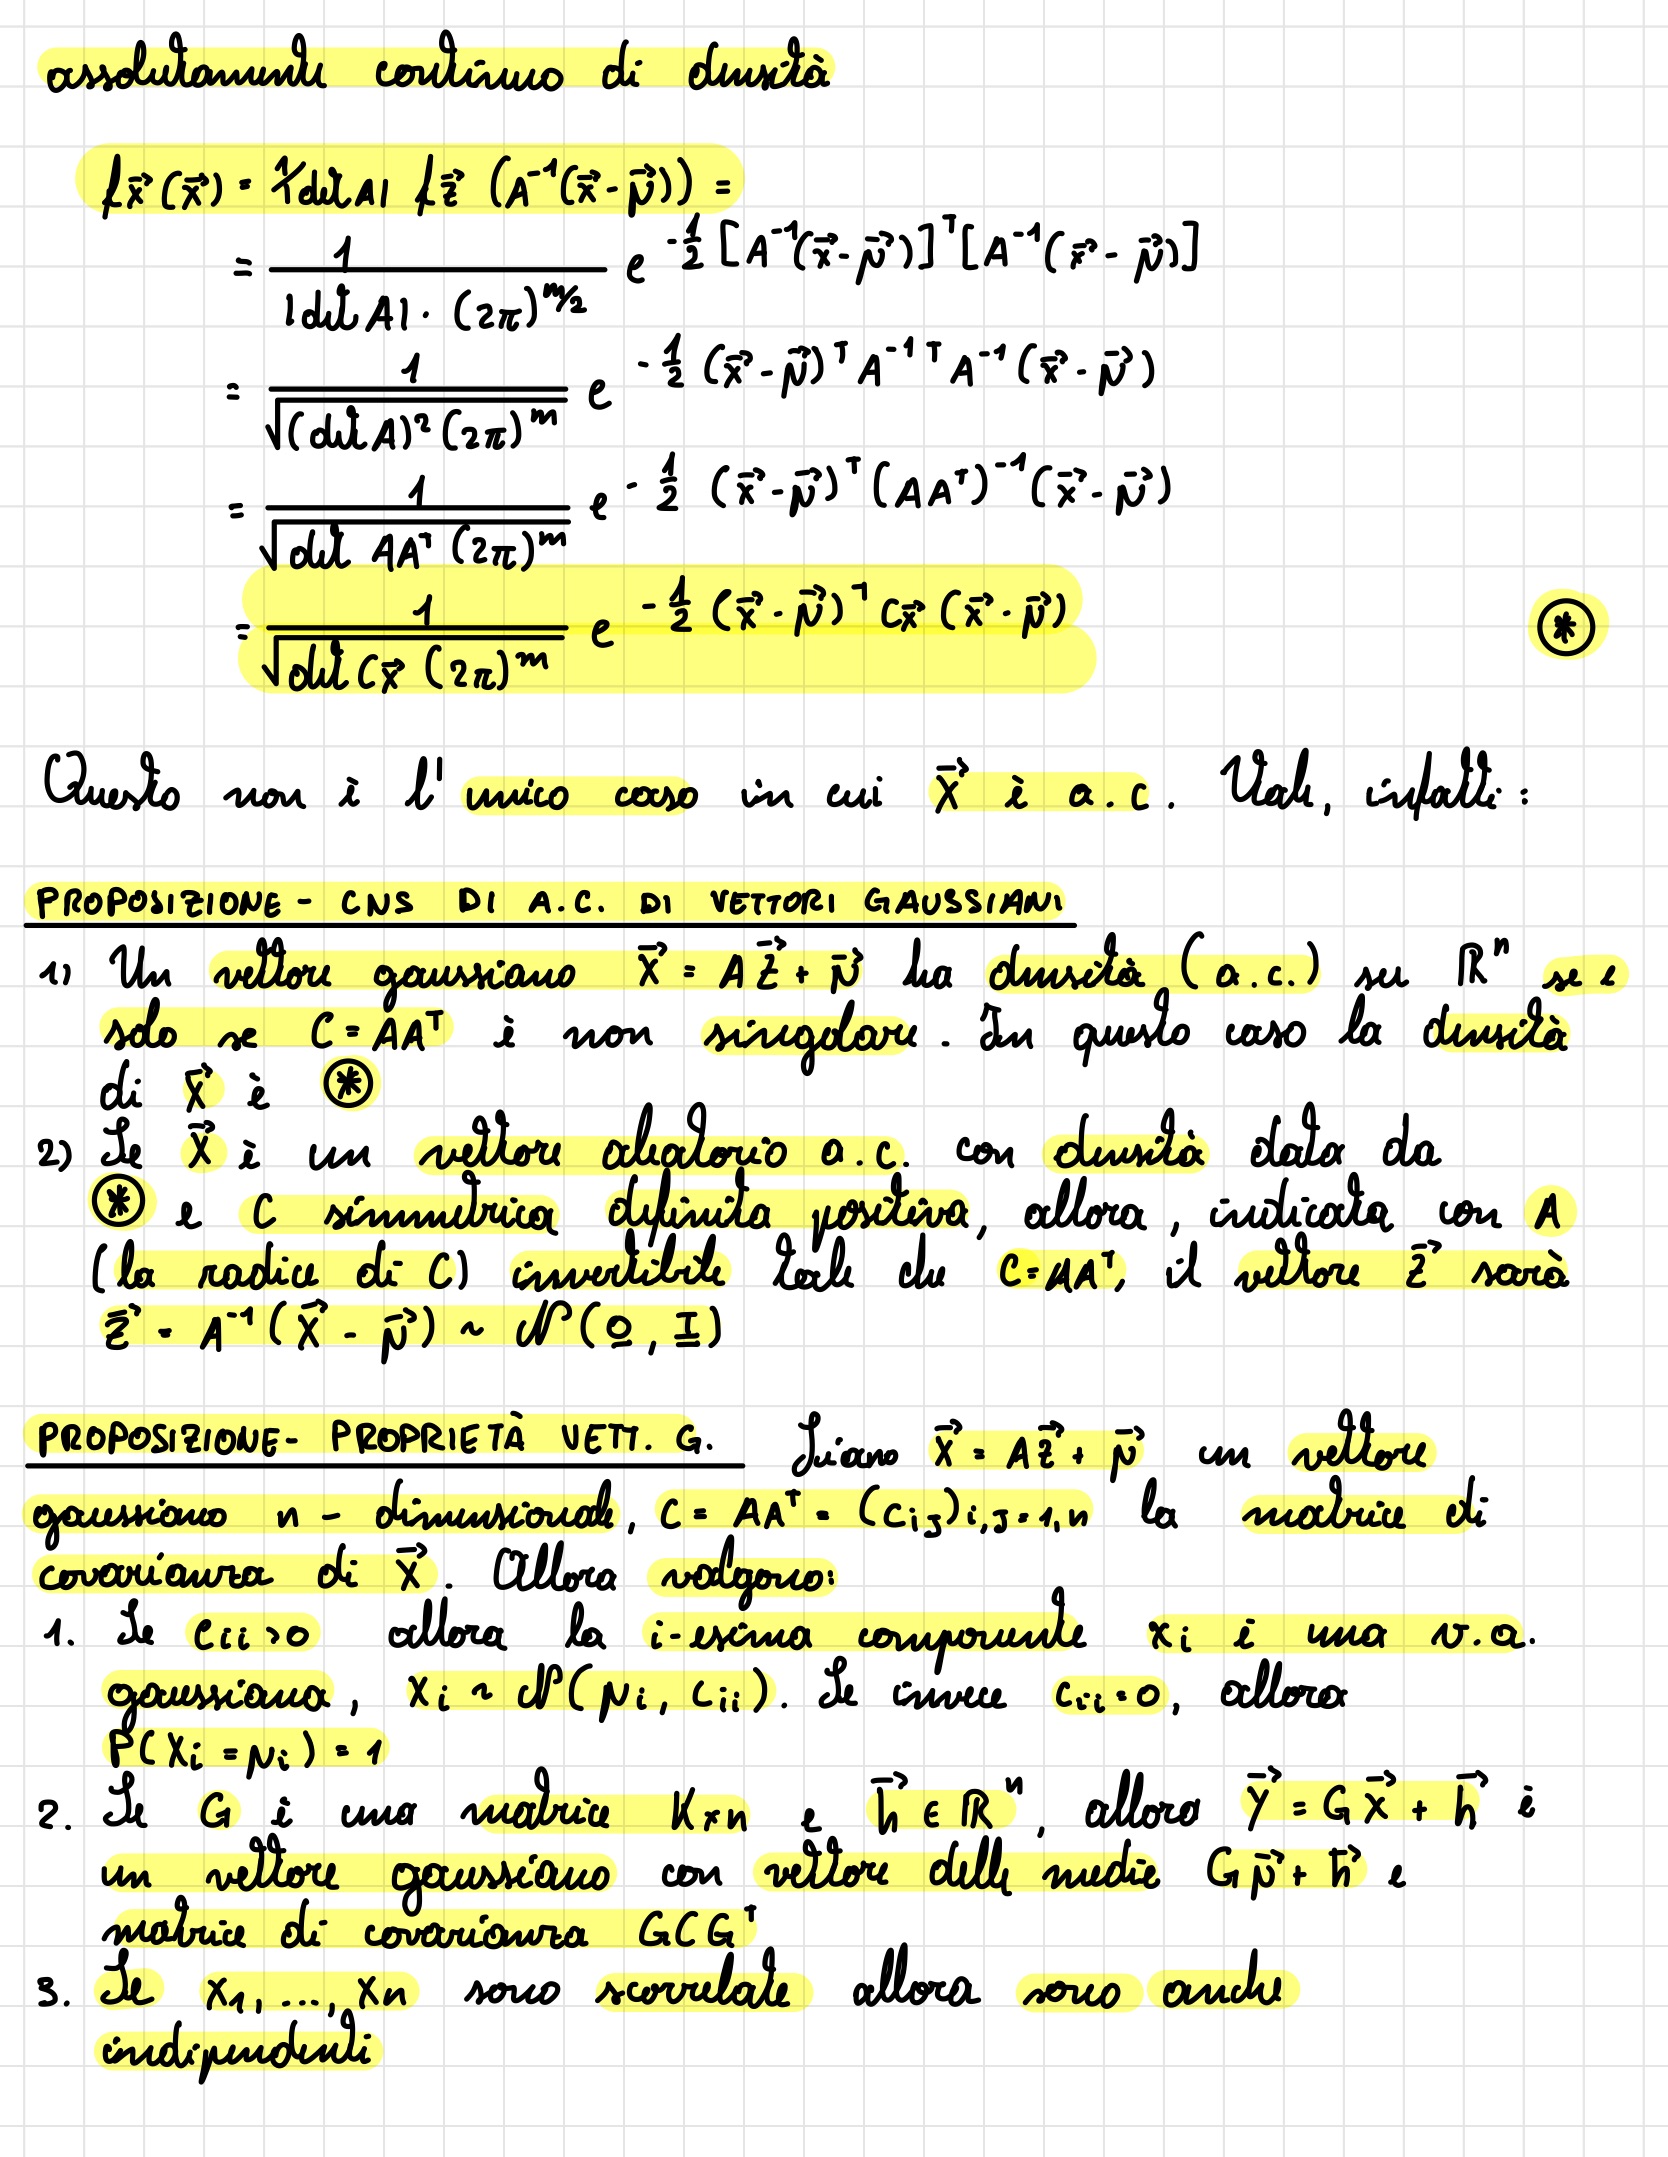 assolutamente continuo di densità
f_X⃗(x⃗) = 1/|det A| f_Z⃗ (A⁻¹(x⃗ - μ⃗)) =
= 1 / (|det A| · (2π)^{m/2}) e^{-1/2 [A⁻¹(x⃗ - μ⃗)]ᵀ [A⁻¹(x⃗ - μ⃗)]}
= 1 / √((det A)² (2π)^m) e^{-1/2 (x⃗ - μ⃗)ᵀ A⁻¹ᵀ A⁻¹ (x⃗ - μ⃗)}
= 1 / √(det AAᵀ (2π)^m) e^{-1/2 (x⃗ - μ⃗)ᵀ (AAᵀ)⁻¹ (x⃗ - μ⃗)}
= 1 / √(det C_X⃗ (2π)^m) e^{-1/2 (x⃗ - μ⃗)ᵀ C_X⃗ (x⃗ - μ⃗)} ⊛
Questo non è l' unico caso in cui X⃗ è a.c. Vale, infatti:
PROPOSIZIONE - CNS DI A.C. DI VETTORI GAUSSIANI
1) Un vettore gaussiano X⃗ = AZ⃗ + μ⃗ ha densità (a.c.) su ℝⁿ se e
solo se C = AAᵀ è non singolare. In questo caso la densità
di X⃗ è ⊛
2) Se X⃗ è un vettore aleatorio a.c. con densità data da
⊛ e C simmetrica definita positiva, allora, indicata con A
(la radice di C) invertibile tale che C=AAᵀ, il vettore Z⃗ sarà
Z⃗ = A⁻¹(X⃗ - μ⃗) ~ N(0, I)
PROPOSIZIONE - PROPRIETÀ VETT. G. Siano X⃗ = AZ⃗ + μ⃗ un vettore
gaussiano n - dimensionale, C = AAᵀ = (Cij)i,j=1,n la matrice di
covarianza di X⃗. Allora valgono:
1. Se cii>0 allora la i-esima componente Xi è una v.a.
gaussiana, Xi ~ N(μi, cii). Se invece cii=0, allora
P(Xi = μi) = 1
2. Se G è una matrice K×n e h⃗ ∈ ℝⁿ, allora Y⃗ = GX⃗ + h⃗ è
un vettore gaussiano con vettore delle medie Gμ⃗ + h⃗ e
matrice di covarianza GCGᵀ
3. Se X1, ..., Xn sono scorrelate allora sono anche
indipendenti